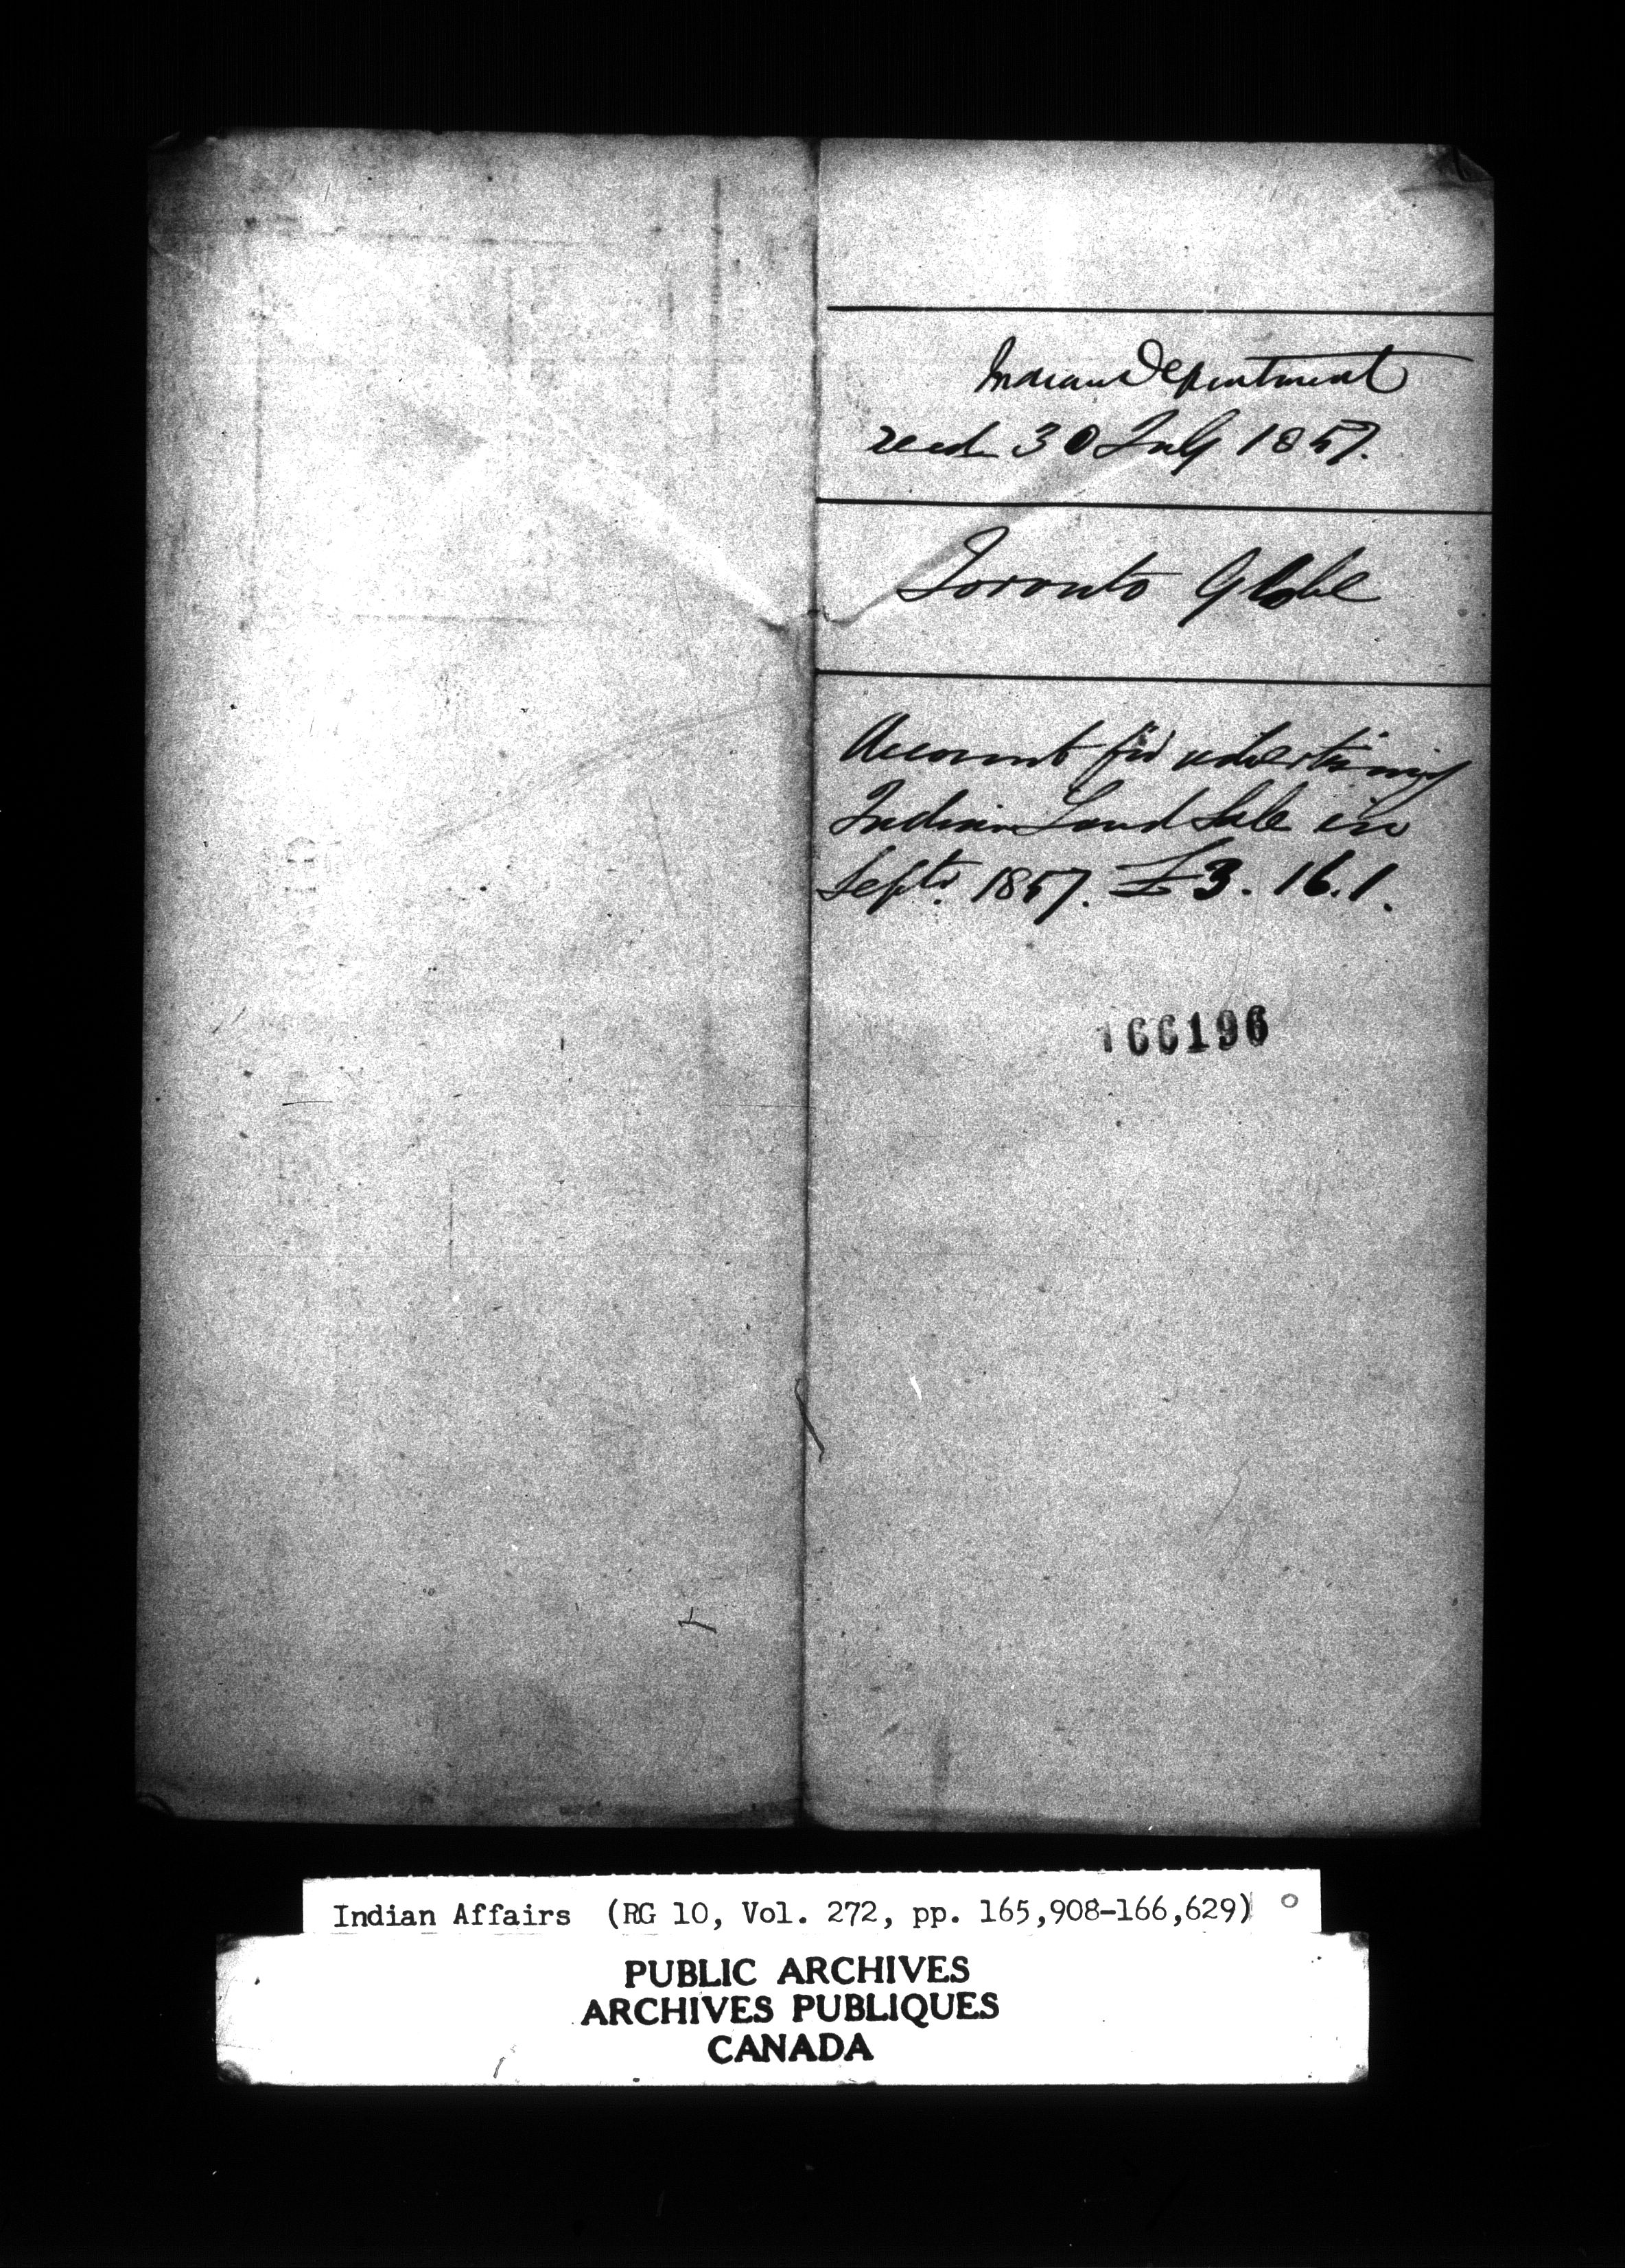 Indian Department
recd 30 July 1857.
Toronto Globe
Account for advertising
Indian Land Sale in
Septr. 1857. £3. 16. 1.
166196
Indian Affairs (RG 10, Vol. 272, pp. 165,908-166,629)
PUBLIC ARCHIVES
ARCHIVES PUBLIQUES
CANADA